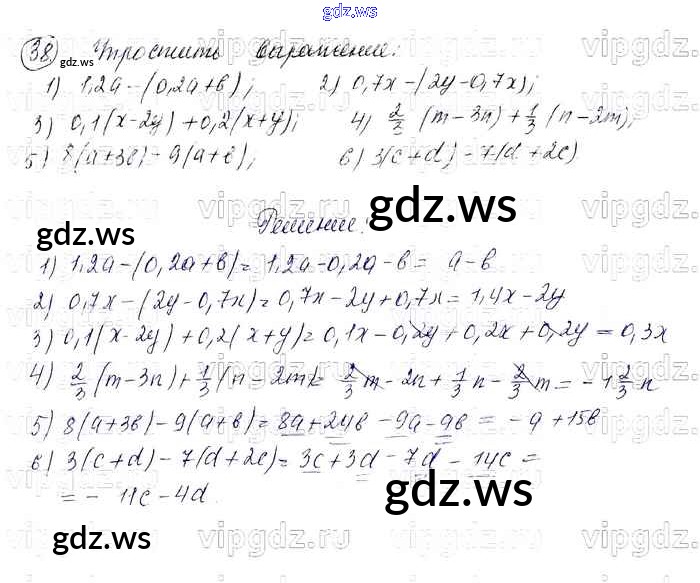 gdz.ws
38) Упростить выражение:
gdz.ws
1) 1,2a-(0,2a+b); 2) 0,7x-(2y-0,7x);
3) 0,1(x-2y)+0,2(x+y); 4) 2/3 (m-3n)+1/3 (n-2m);
5) 8(a+3b)-9(a+b); 6) 3(c+d)-7(d+2c)
gdz.ws
gdz.ws
Решение:
1) 1,2a-(0,2a+b)=1,2a-0,2a-b= a-b
2) 0,7x-(2y-0,7x)=0,7x-2y+0,7x=1,4x-2y
3) 0,1(x-2y)+0,2(x+y)=0,1x-0,2y+0,2x+0,2y=0,3x
4) 2/3 (m-3n)+1/3 (n-2m)= 2/3 m-2n+1/3 n-2/3 m=-1 2/3 n
5) 8(a+3b)-9(a+b)=8a+24b-9a-9b=-a+15b
6) 3(c+d)-7(d+2c)=3c+3d-7d-14c=
=-11c-4d.
gdz.ws
gdz.ws
vipgdz.ru